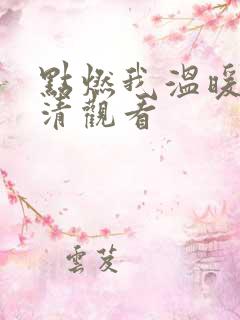 點燃我,溫暖
清觀看
雲芨